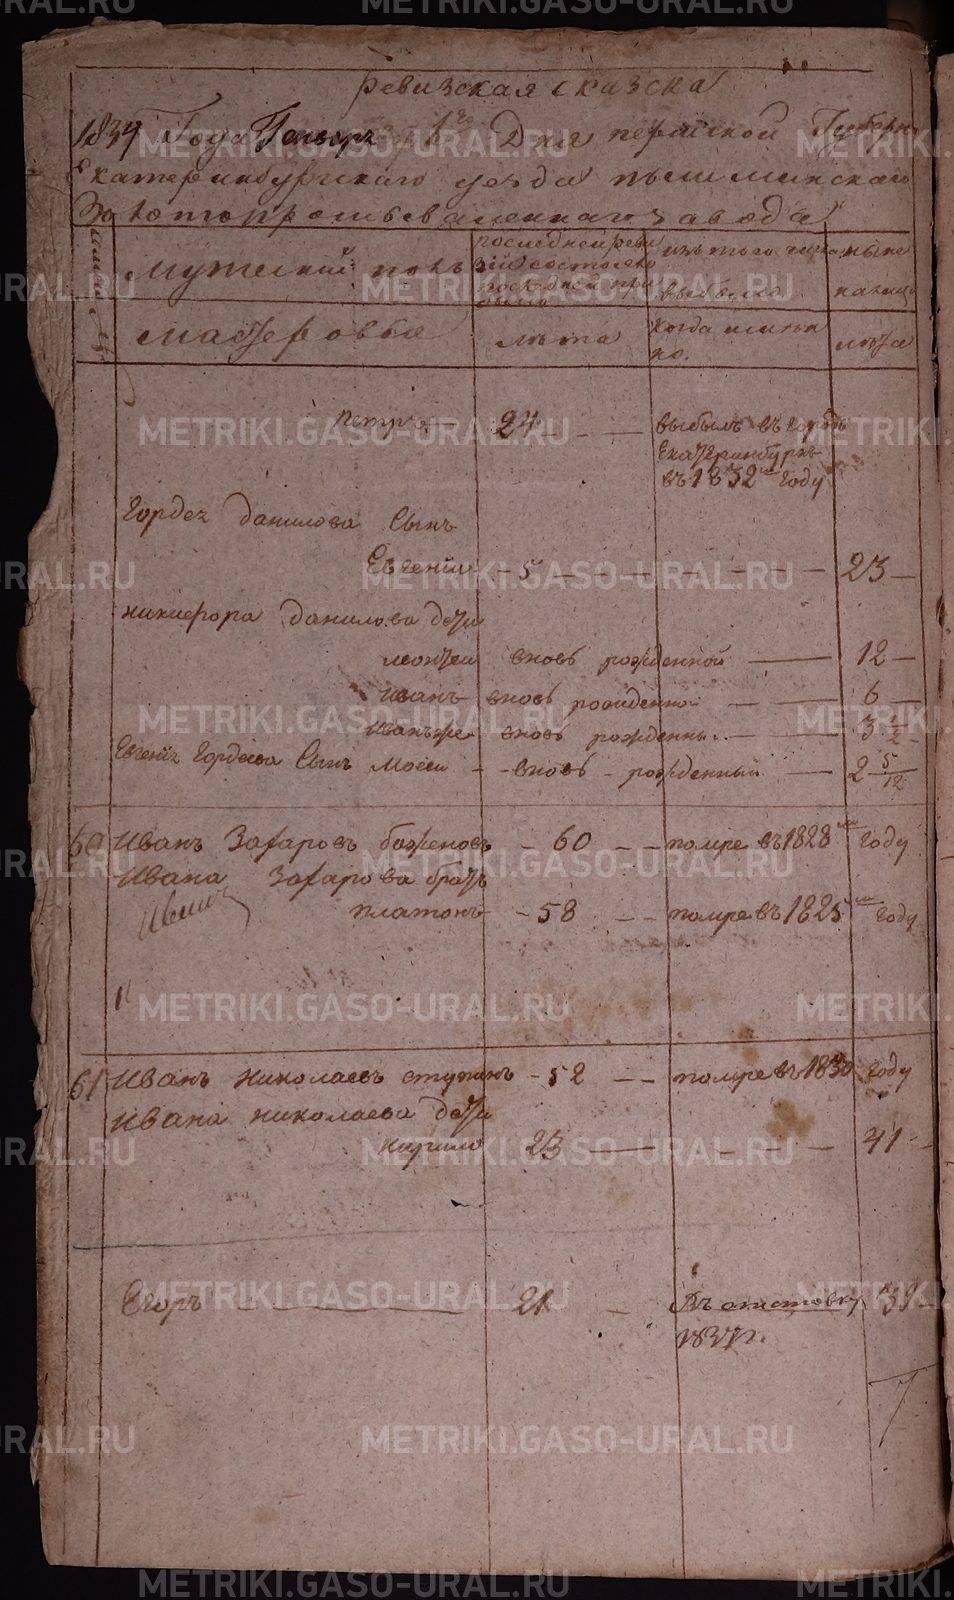 Ревизская сказска
1834 Года Генваря 1го Дня пермской Губерн
Екатеринбургскаго уезда пышминскаго
Золотопромываленнаго завода
мужеский полъ
последней реви
зіи состояло
и последней при
было
изъ того числа
выбыло
ныне
налицо
мастеровые
лѣта
когда имянно
но.
лѣта
Петръ 24 выбылъ въ городъ
Екатеринбурхъ
въ 1832м году
Гордея данилова Сынъ
Евгений 5 23
никифора данилова дети
леонтеи вновь рожденной 12
иванъ вновь рожденно 6
иванъ же вновь рожденны 3 1/2
Евгения Гордеева Сынъ Мосеи вновь рожденный 2 5/12
60 Иванъ Захаровъ баженовъ 60 помре въ 1828м году
Ивана Захарова братъ
платонъ 58 помре въ 1825м году
61 Иванъ николаевъ ступинъ 52 помре въ 1830 году
Ивана николаева дети
кирило 23 41
Егоръ 21 въ отставку 39
1837 г.
METRIKI.GASO-URAL.RU